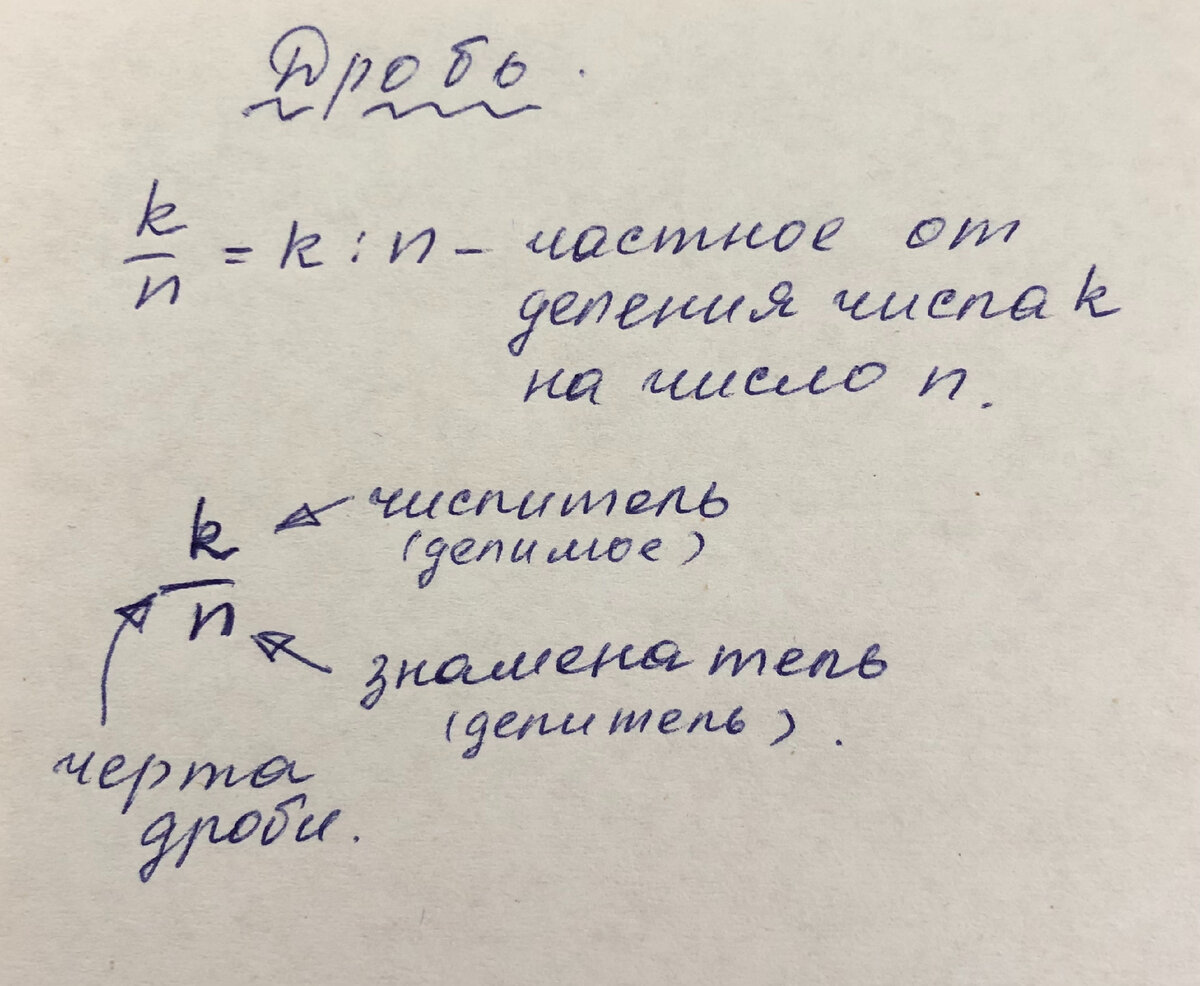 Дробь.
k/n = k : n - частное от
деления числа k
на число n.
k/n
числитель
(делимое)
знаменатель
(делитель).
черта
дроби.